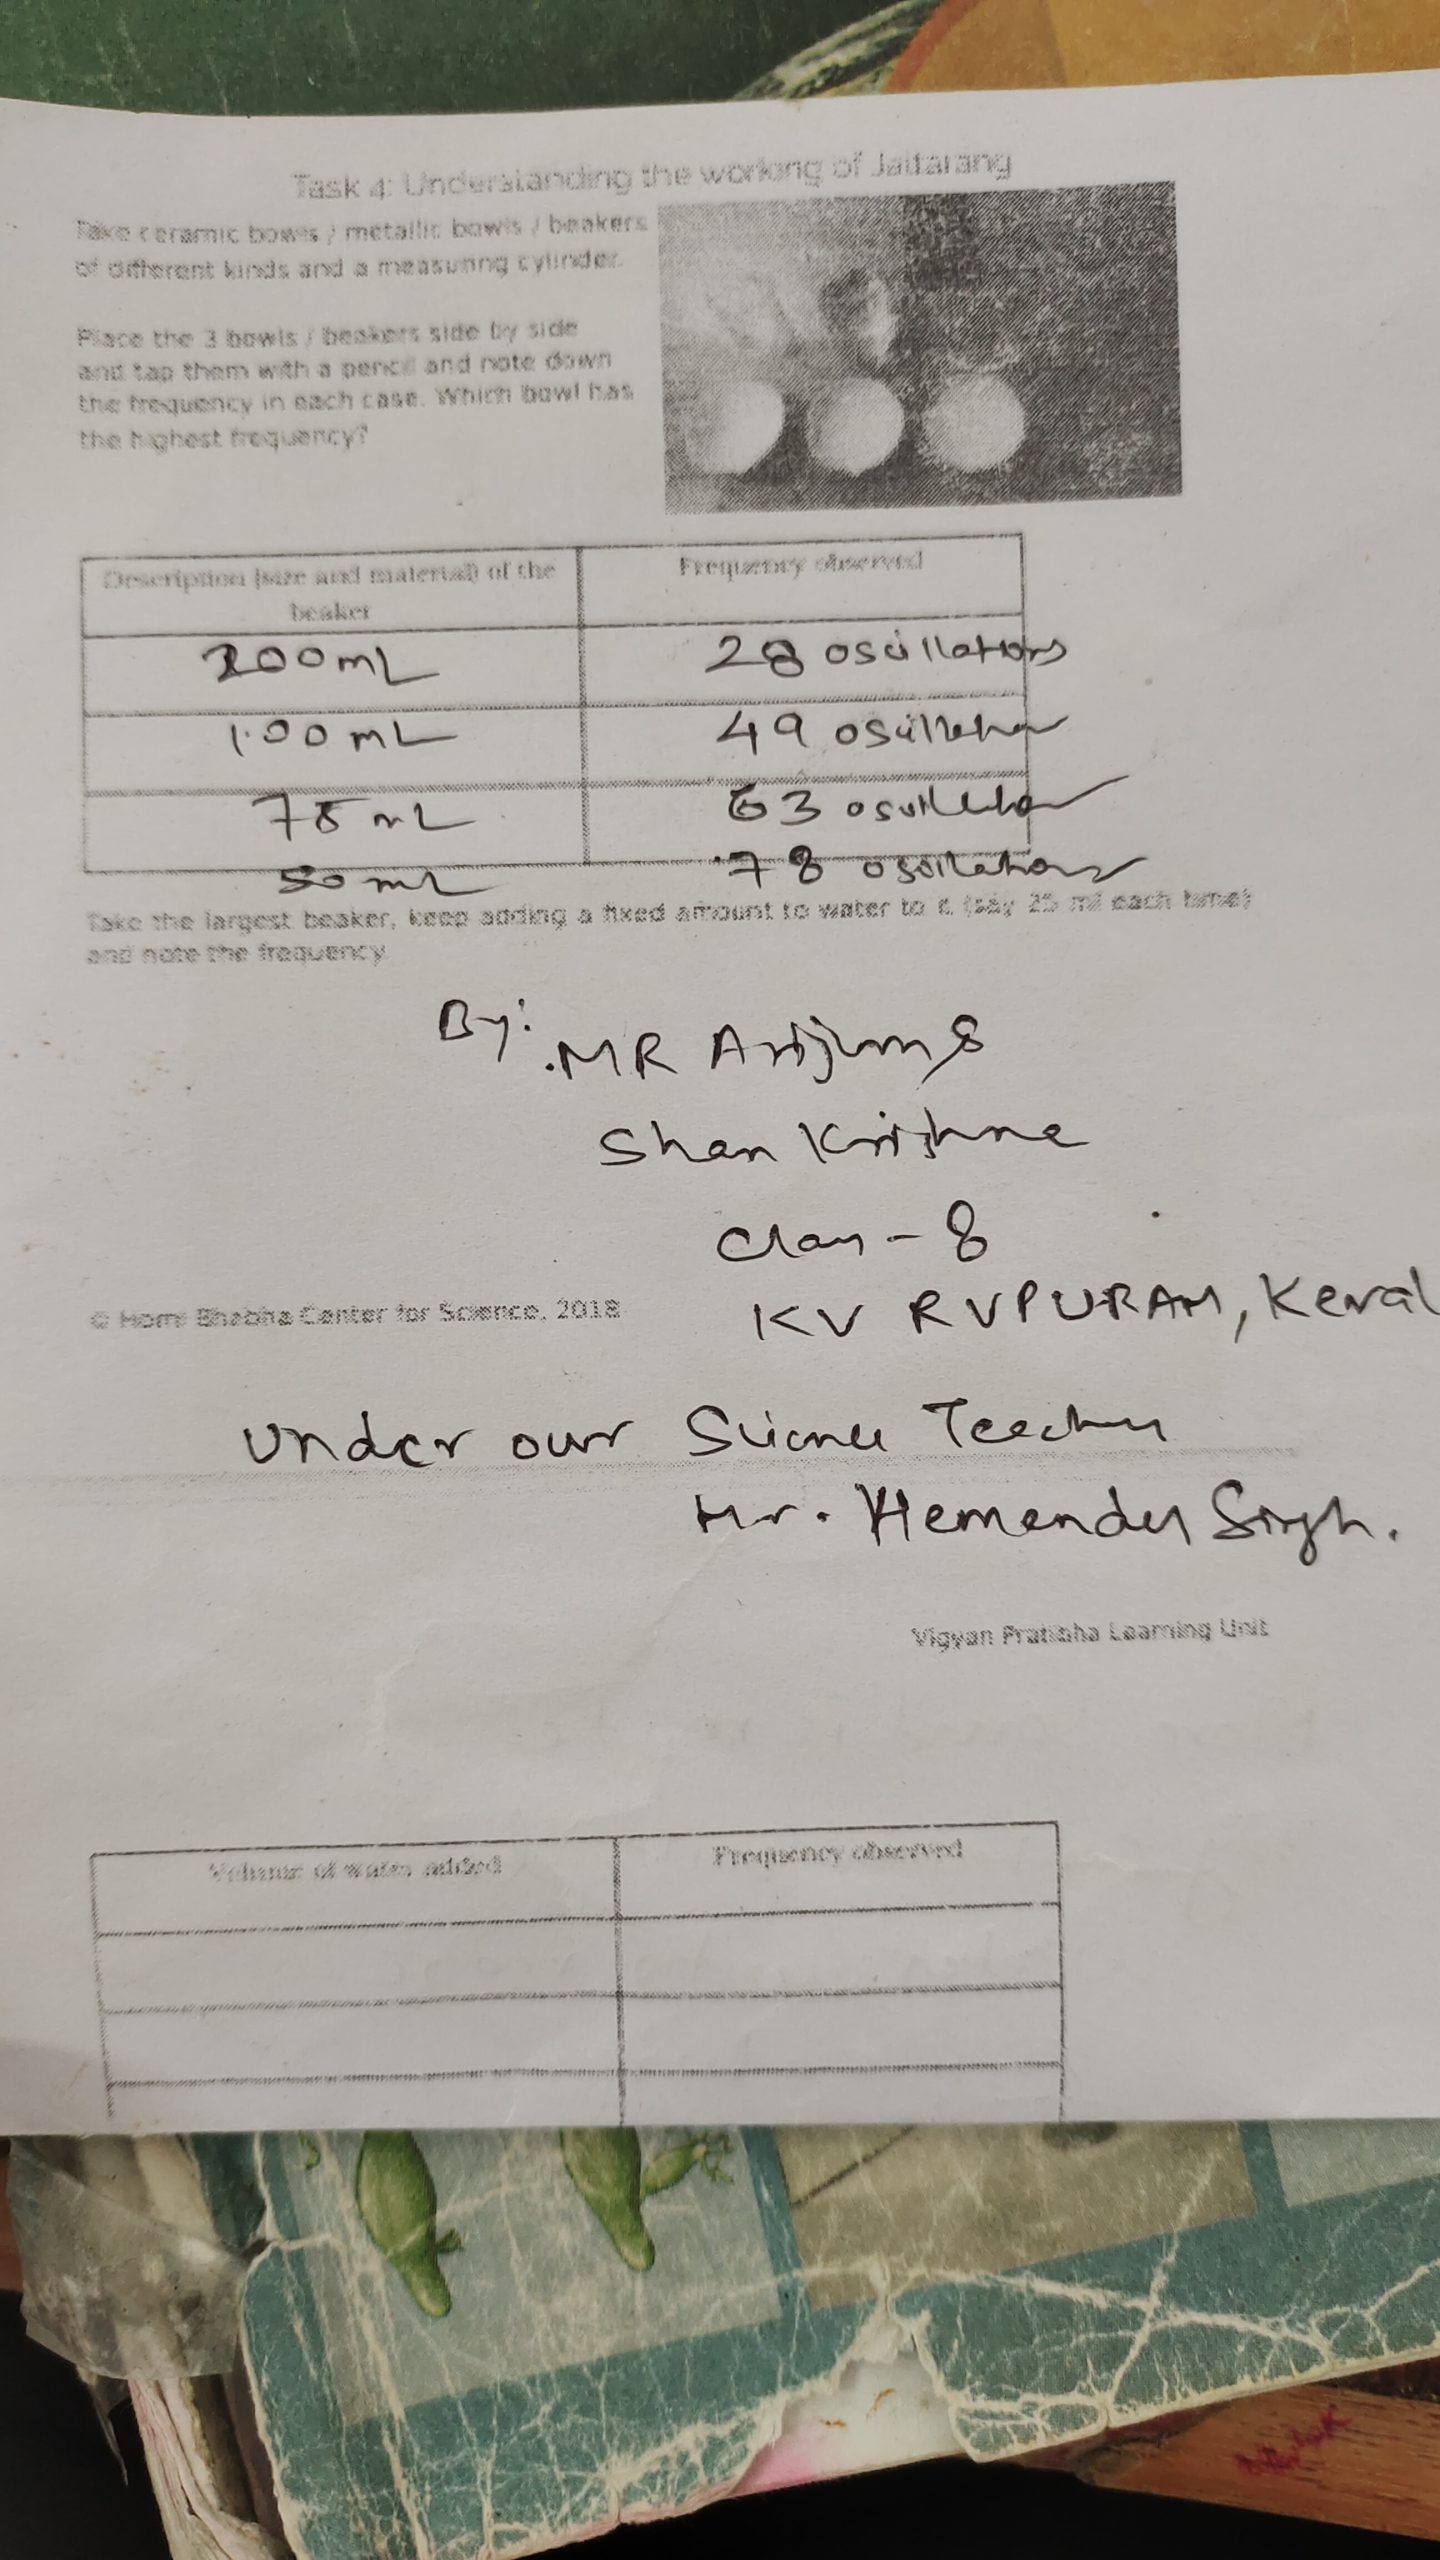 Task 4: Understanding the working of Jaltarang
Take ceramic bowls / metallic bowls / beakers
of different kinds and a measuring cylinder.
Place the 3 bowls / beakers side by side
and tap them with a pencil and note down
the frequency in each case. Which bowl has
the highest frequency?
Description (size and material) of the
beaker
Frequency observed
200 mL
28 oscillations
100 mL
49 oscillation
75 mL
63 oscillation
50 mL
78 oscillations
Take the largest beaker, keep adding a fixed amount to water to it (say 25 ml each time)
and note the frequency
By:
MR &
Shan Krishna
Class - 8
KV RVPURAM, Keral
© Homi Bhabha Center for Science, 2018
Under our Science Teacher
Mr. Hemender Singh.
Vigyan Pratibha Learning Unit
Volume of water added
Frequency observed